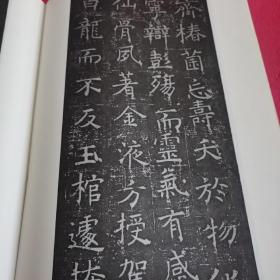 齊椿菌忘壽夭於物化
寧辯彭殤而靈氣有感
仙骨夙著金液方授駕
白龍而不反玉棺遽